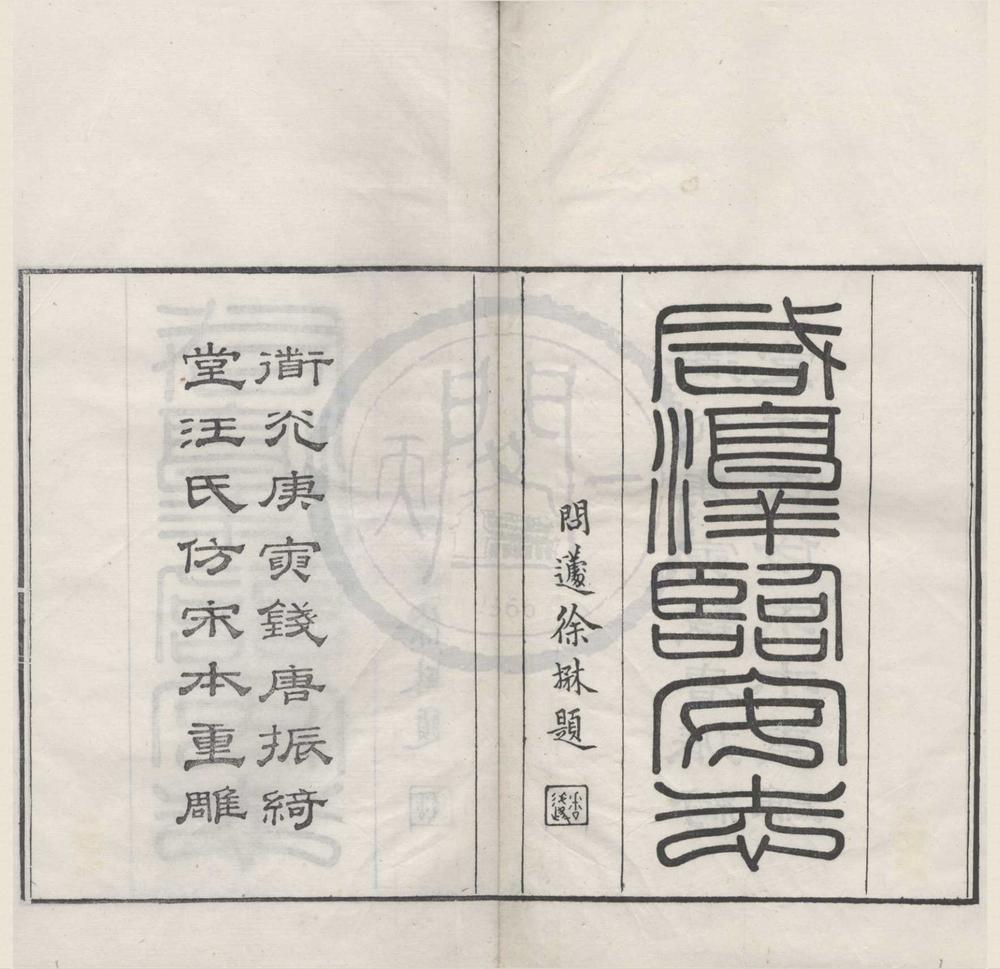 咸淳臨安志
問蘧徐楙題
衜光庚寅錢唐振綺
堂汪氏仿宋本重雕